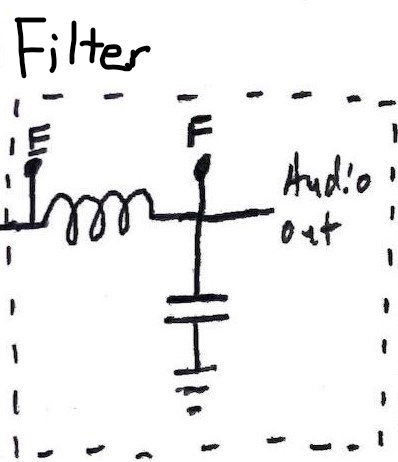 Filter
E
F
Audio
out